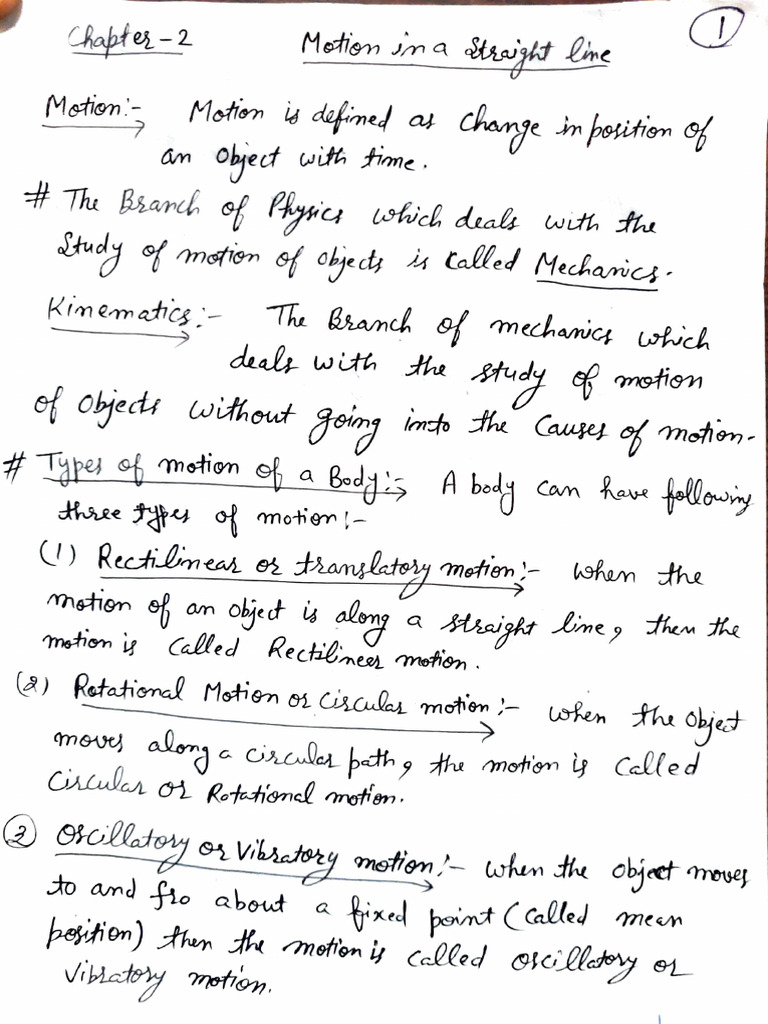 Chapter-2 Motion in a Straight line 1
Motion:- Motion is defined as change in position of
an object with time.
# The Branch of Physics which deals with the
Study of motion of objects is called Mechanics.
Kinematics:- The Branch of mechanics which
deals with the study of motion
of objects without going into the causes of motion.
# Types of motion of a Body:- A body can have following
three types of motion:-
(1) Rectilinear or translatory motion:- when the
motion of an object is along a straight line, then the
motion is called Rectilineer motion.
(2) Rotational Motion or circular motion:- when the object
moves along a circular path, the motion is called
circular or Rotational motion.
3 Oscillatory or Vibratory motion:- when the object moves
to and fro about a fixed point (called mean
position) then the motion is called oscillatory or
vibratory motion.